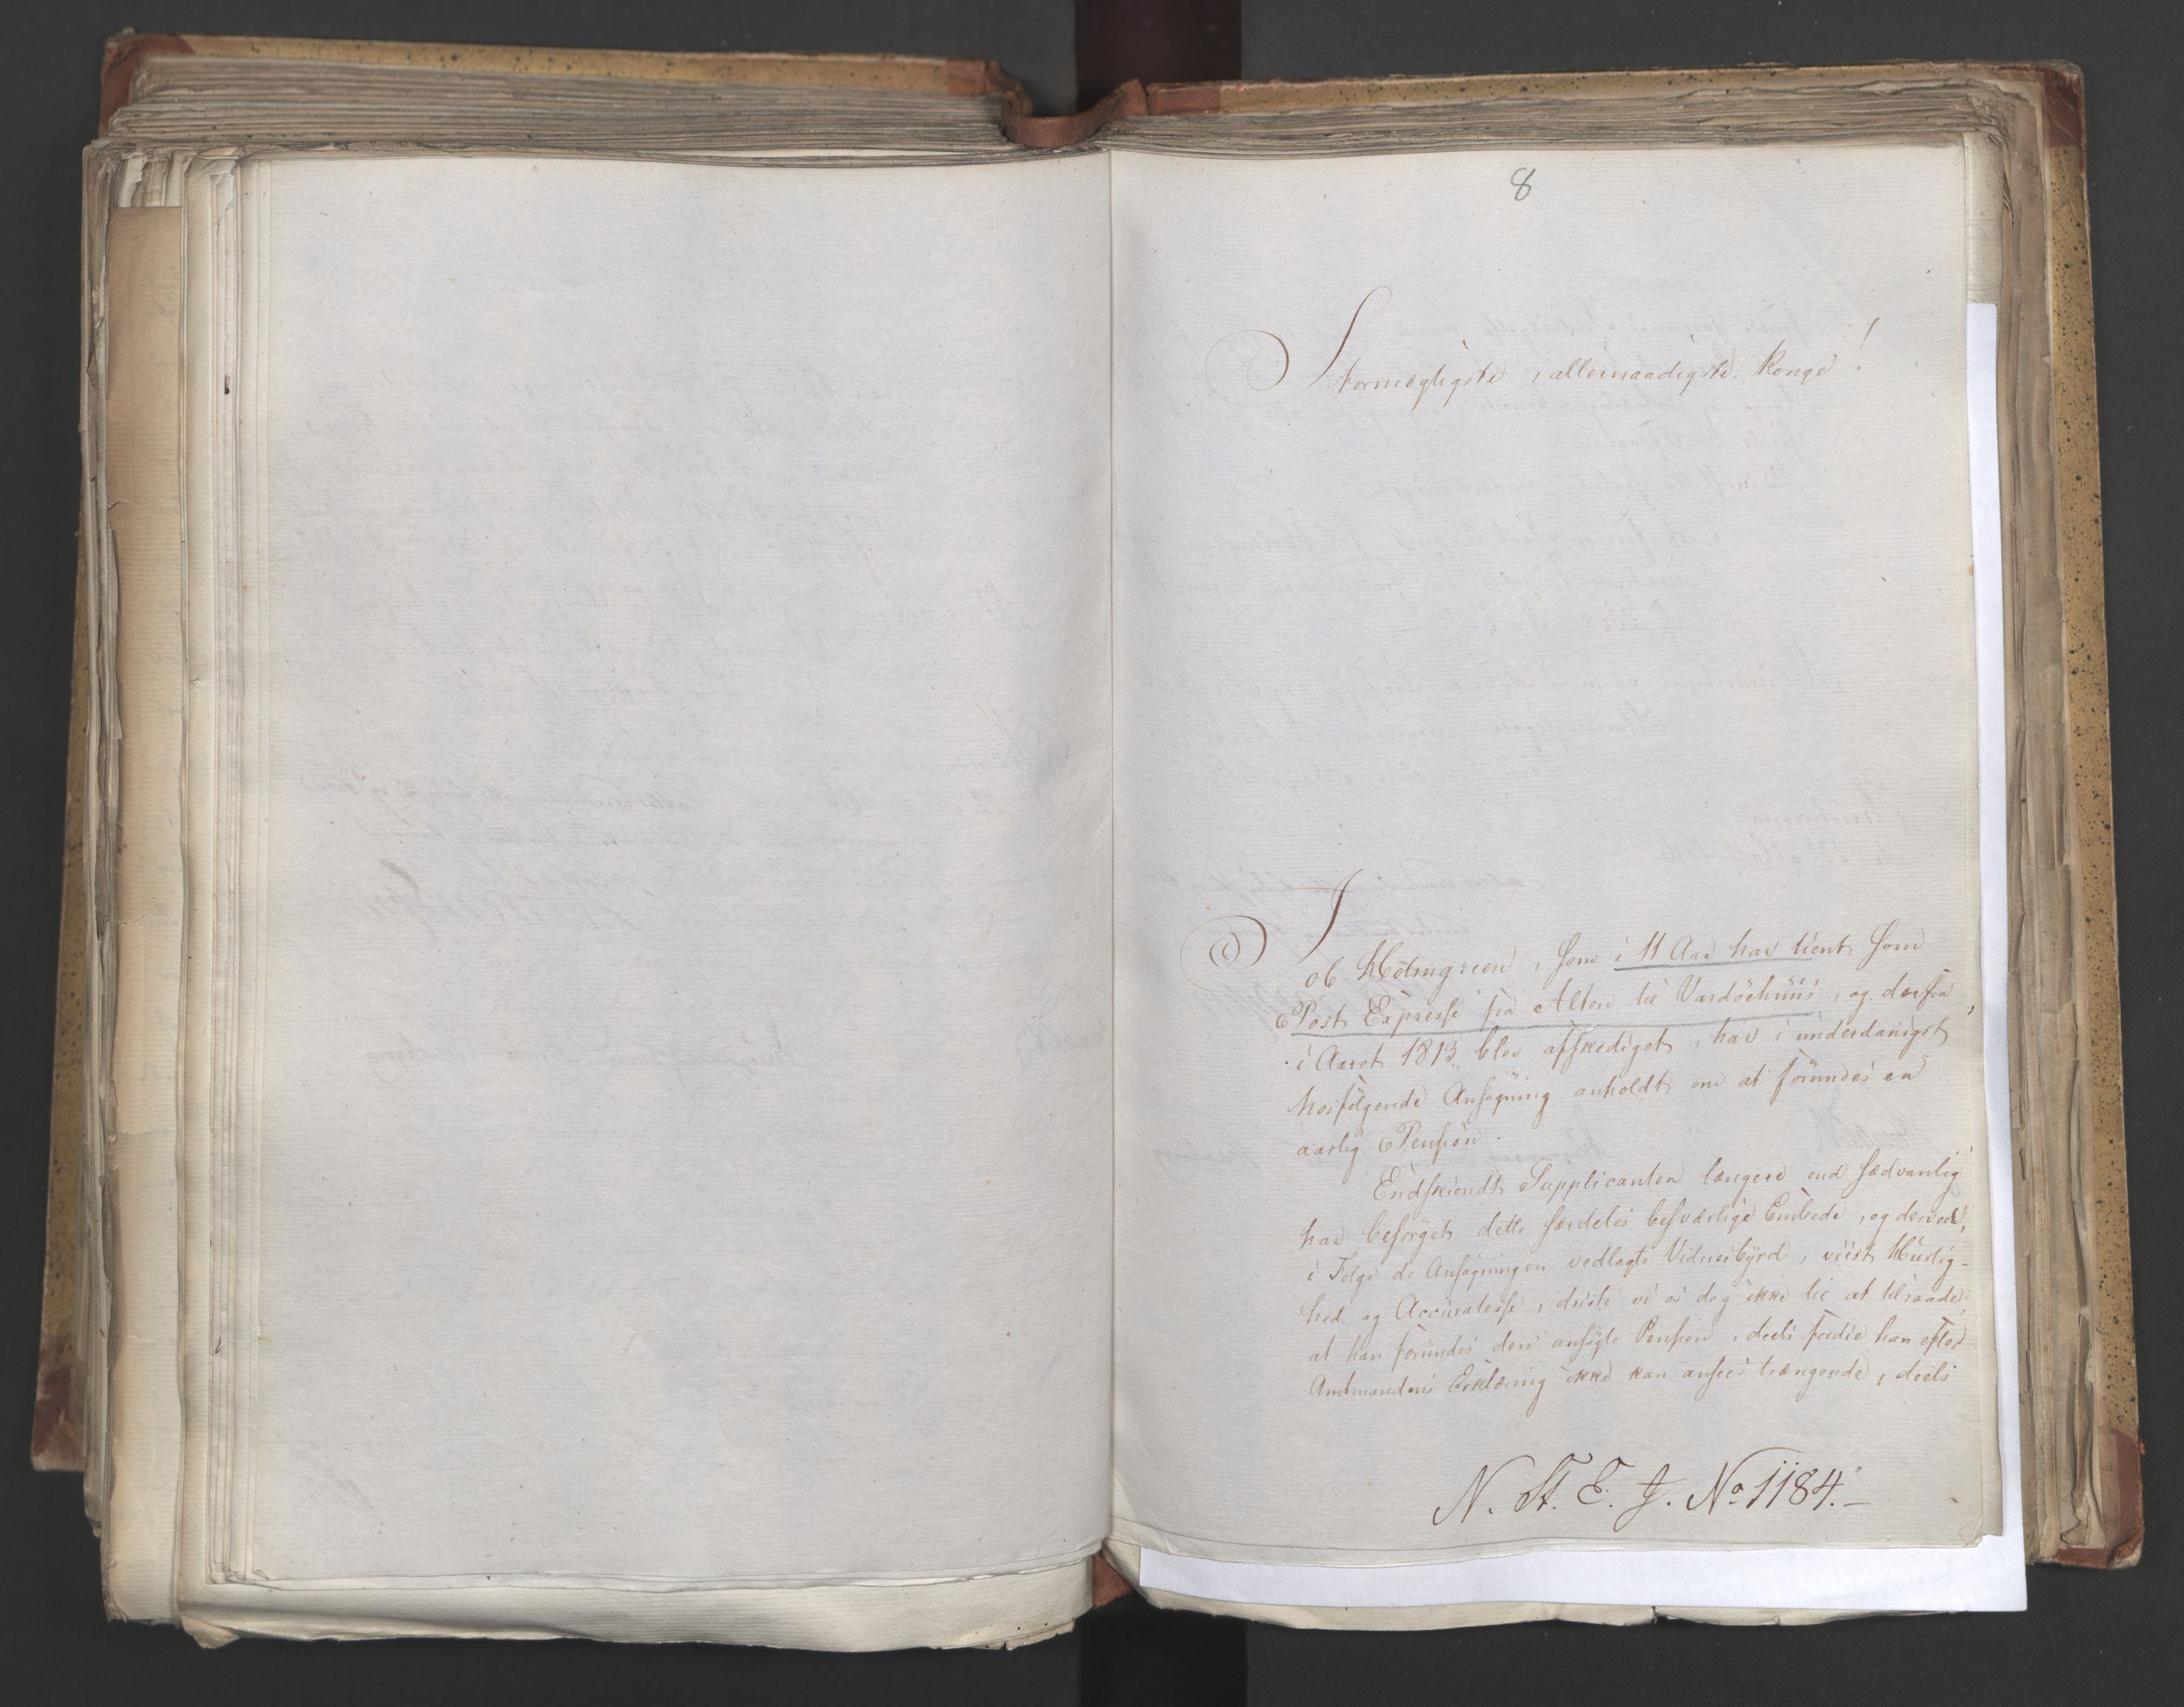 8
Stormægtigste, allernaadigste Konge!
Job Holmgreen, som i 11 Aar har tient som
Post Expresse fra Alten til Vardöehuus, og derfra
i Aaret 1813 blev afskediget, har i underdanigst
hosfölgende Ansögning anholdt om at forundes en
aarlig Pension.
Endskiöndt Supplicanten længere end sædvanlig
har besörget dette særdeles besværlige Embede, og derved,
i Fölge de Ansögningen vedlagte Vidnesbyrd, viist Hurtig-
hed og Accuratesse, driste vi os dog ikke til at tilraade,
at han forundes den ansögte Pension, deels fordie han efter
Amtmandens Erklæring ikke kan ansees trængende, deels
N. St. E. J. No 1184.-